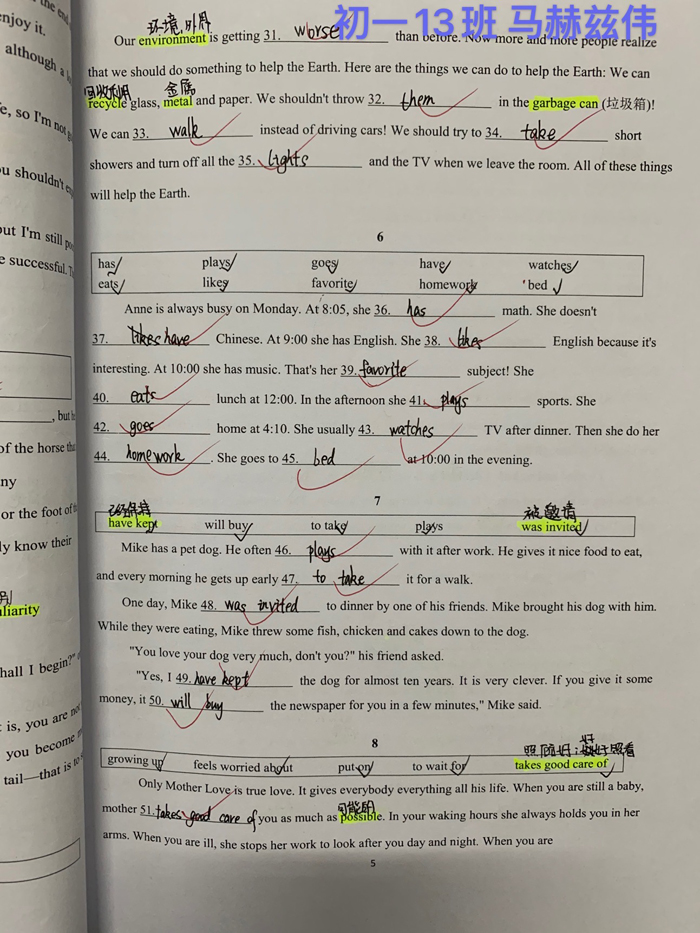 初一13班 马赫兹伟
enjoy it.
although a
so I'm not
u shouldn't
out I'm still
e successful.
, but
of the horse
ny
or the foot of
ly know their
hall I begin?"
is, you are not
you become
tail—that is to
环境,外界
Our environment is getting 31. worse than before. Now more and more people realize
that we should do something to help the Earth. Here are the things we can do to help the Earth: We can
回收利用 金属
recycle glass, metal and paper. We shouldn't throw 32. them in the garbage can (垃圾箱)!
We can 33. walk instead of driving cars! We should try to 34. take short
showers and turn off all the 35. lights and the TV when we leave the room. All of these things
will help the Earth.
6
has plays goes have watches
eats likes favorite homework bed
Anne is always busy on Monday. At 8:05, she 36. has math. She doesn't
37. have Chinese. At 9:00 she has English. She 38. likes English because it's
interesting. At 10:00 she has music. That's her 39. favorite subject! She
40. eats lunch at 12:00. In the afternoon she 41. plays sports. She
42. goes home at 4:10. She usually 43. watches TV after dinner. Then she do her
44. homework. She goes to 45. bed at 10:00 in the evening.
7
被邀请
have kept will buy to take plays was invited
Mike has a pet dog. He often 46. plays with it after work. He gives it nice food to eat,
and every morning he gets up early 47. to take it for a walk.
One day, Mike 48. was invited to dinner by one of his friends. Mike brought his dog with him.
While they were eating, Mike threw some fish, chicken and cakes down to the dog.
"You love your dog very much, don't you?" his friend asked.
"Yes, I 49. have kept the dog for almost ten years. It is very clever. If you give it some
money, it 50. will buy the newspaper for you in a few minutes," Mike said.
8
照顾好;好好照看
growing up feels worried about put on to wait for takes good care of
Only Mother Love is true love. It gives everybody everything all his life. When you are still a baby,
可能的
mother 51. takes good care of you as much as possible. In your waking hours she always holds you in her
arms. When you are ill, she stops her work to look after you day and night. When you are
5